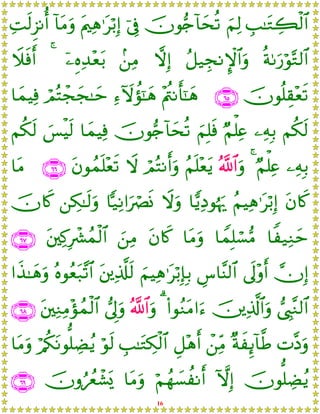 ٱلۡكِتَٰبِ لِمَ تُحَآجُّونَ فِيٓ إِبۡرَٰهِيمَ وَمَآ أُنزِلَتِ
ٱلتَّوۡرَىٰةُ وَٱلۡإِنجِيلُ إِلَّا مِنۢ بَعۡدِهِۦٓۚ أَفَلَا
تَعۡقِلُونَ ٦٥ هَٰٓأَنتُمۡ هَٰٓؤُلَآءِ حَٰجَجۡتُمۡ فِيمَا
لَكُم بِهِۦ عِلۡمٞ فَلِمَ تُحَآجُّونَ فِيمَا لَيۡسَ لَكُم
بِهِۦ عِلۡمٞۚ وَٱللَّهُ يَعۡلَمُ وَأَنتُمۡ لَا تَعۡلَمُونَ ٦٦ مَا
كَانَ إِبۡرَٰهِيمُ يَهُودِيّٗا وَلَا نَصۡرَانِيّٗا وَلَٰكِن كَانَ
حَنِيفٗا مُّسۡلِمٗا وَمَا كَانَ مِنَ ٱلۡمُشۡرِكِينَ ٦٧
إِنَّ أَوۡلَى ٱلنَّاسِ بِإِبۡرَٰهِيمَ لَلَّذِينَ ٱتَّبَعُوهُ وَهَٰذَا
ٱلنَّبِيُّ وَٱلَّذِينَ ءَامَنُواْۗ وَٱللَّهُ وَلِيُّ ٱلۡمُؤۡمِنِينَ ٦٨
وَدَّت طَّآئِفَةٞ مِّنۡ أَهۡلِ ٱلۡكِتَٰبِ لَوۡ يُضِلُّونَكُمۡ وَمَا
يُضِلُّونَ إِلَّآ أَنفُسَهُمۡ وَمَا يَشۡعُرُونَ ٦٩